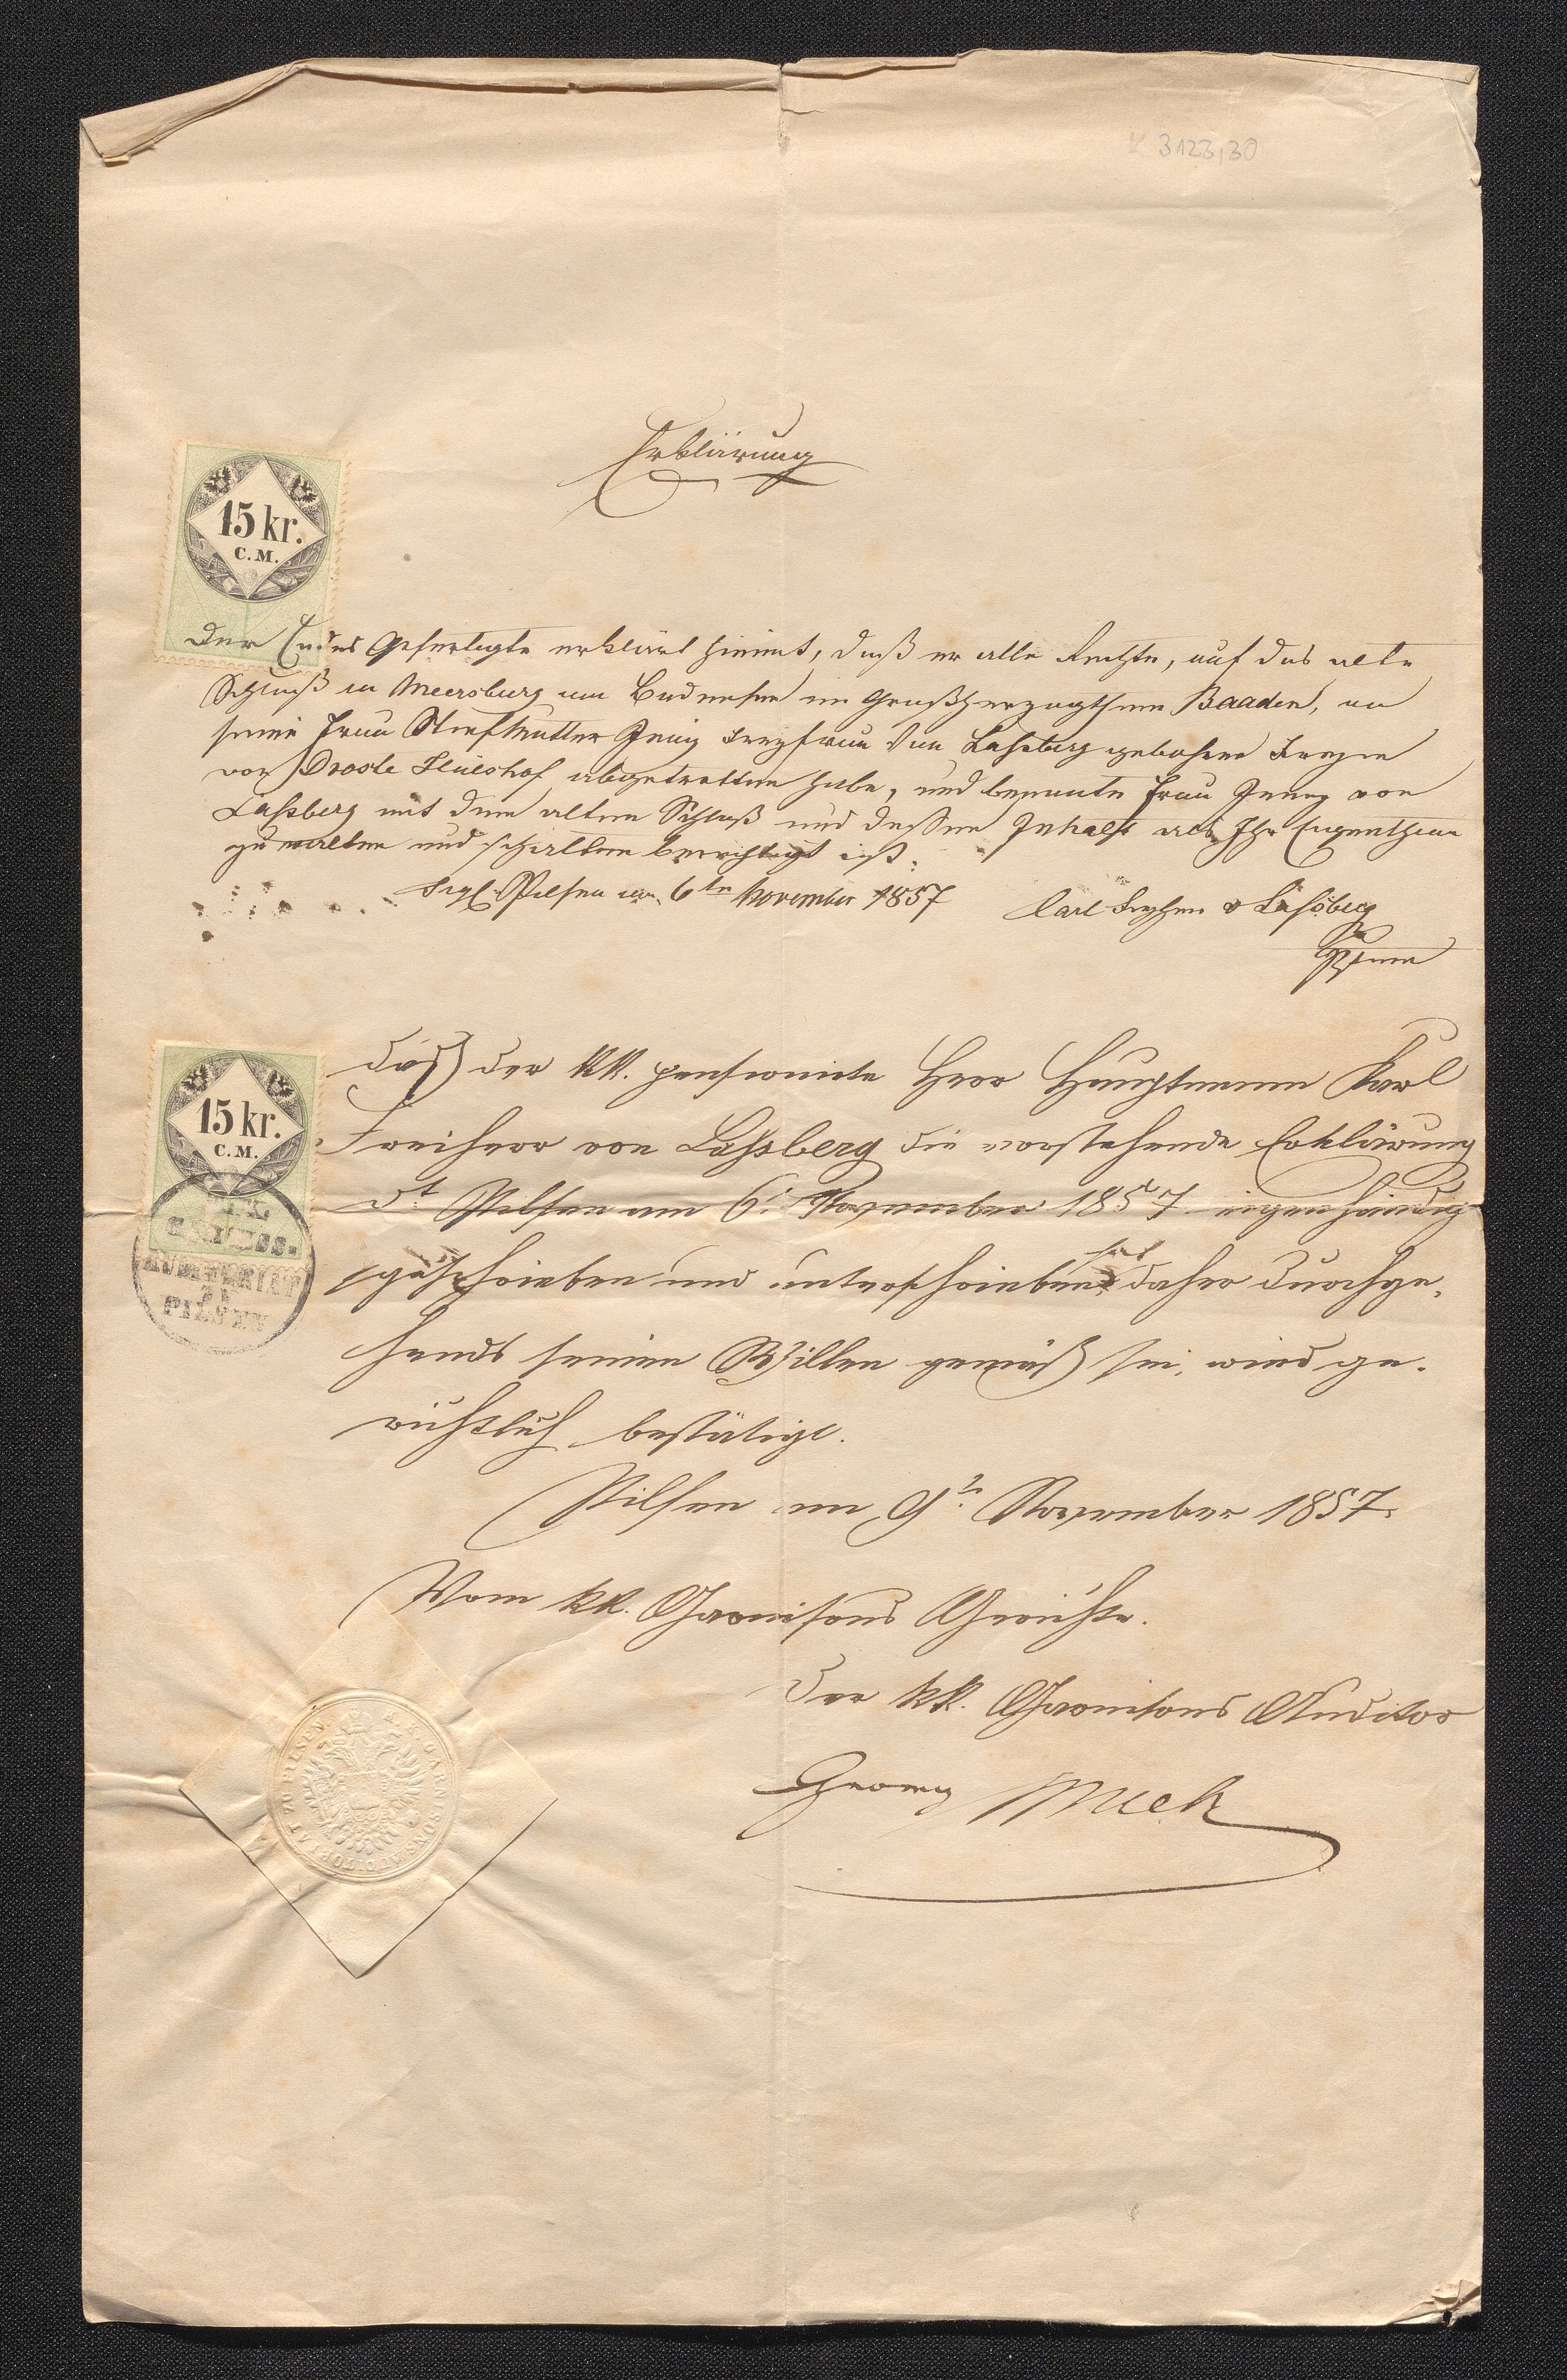 K 3123,30
Erklärung
15 kr.
C.M.
Der Endes Gefertigte erklärt hiemit, daß er alle Rechte, auf das alte
Schloß in Meersburg am Bodensee im Großherzogthum Baaden, an
seine Frau Stiefmutter Jenny Freyfrau von Laßberg gebohrne Freyin
von Droste Hülshof abgetretten habe, und benannte Frau Jenny von
Laßberg mit dem alten Schloß und dessen Inhalt als Ihr Eigenthum
zu walten und schalten berechtigt ist.
Sigl. Pilsen am 6te November 1857
Carl Freyherr v Laßberg
Hptmn
15 kr.
C.M.
Daß der kk. pensionirte Herr Hauptmann Karl
Freiherr von Laßberg die vorstehende Erklärung
dt Pilsen am 6t November 1857 eigenhändig
geschrieben und unterschrieben hat daher durchge-
hends seinem Willen gemäß sei, wird ge-
richtlich bestätigt.
Pilsen am 9t November 1857.
Vom kk. Garnisons Gerichte.
Der kk. Garnisons Auditor
Georg Mück
K.K. GARNISONS AUDITORIAT ZU PILSEN
PILSEN